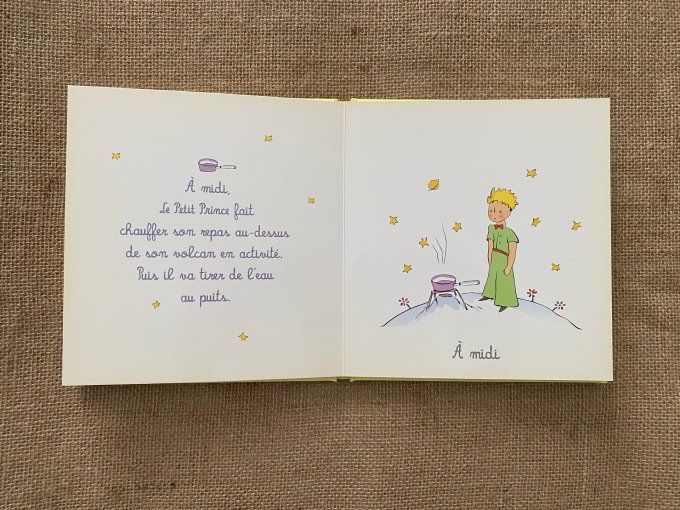 À midi,
Le Petit Prince fait
chauffer son repas au-dessus
de son volcan en activité.
Puis il va tirer de l'eau
au puits.
À midi